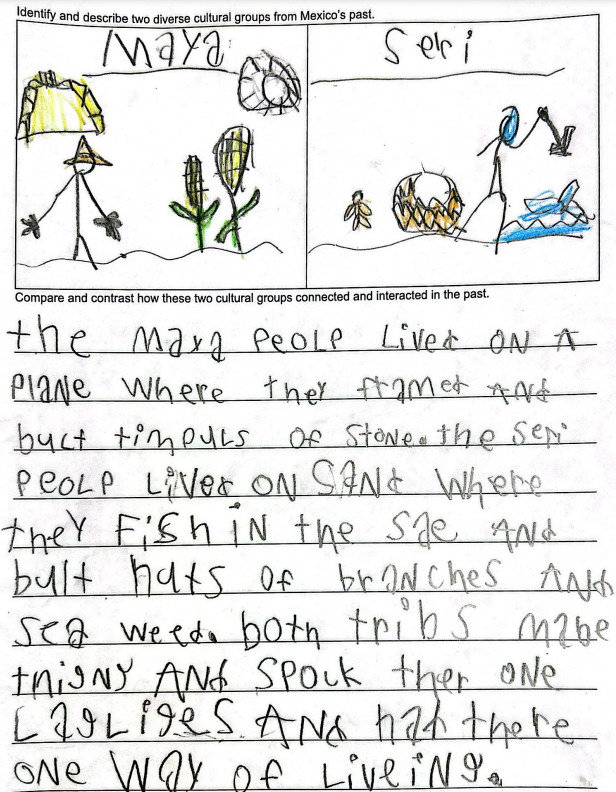 Identify and describe two diverse cultural groups from Mexico's past.
Maya Seri
Compare and contrast how these two cultural groups connected and interacted in the past.
the maya PeOLP Lived ON A
PlANE Where they framed AND
buct timpuls OF Stone. the Seri
PeOLP LiVed ON SANd Where
they Fish iN the Sae ANd
bult huts OF branches ANd
Sea weed. both tribs mabe
tnigny ANd SPOUk ther ONe
Lagliges ANd had there
ONe WAy OF LiveiNg.